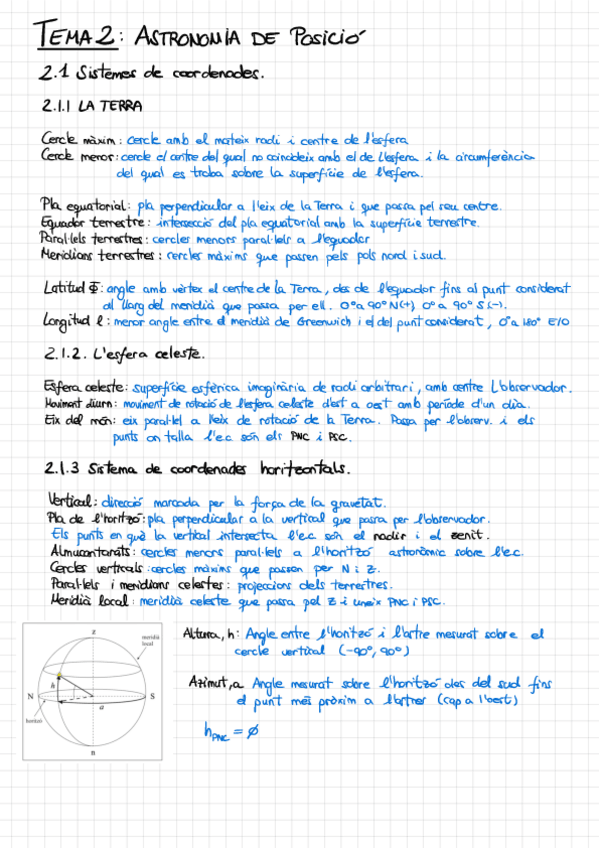 TEMA 2: ASTRONOMIA DE POSICIÓ
2.1 Sistemes de coordenades.
2.1.1 LA TERRA
Cercle màxim: cercle amb el mateix radi i centre de l'esfera
Cercle menor: cercle el centre del qual no coincideix amb el de l'esfera i la circumferència
del qual es troba sobre la superfície de l'esfera.
Pla equatorial: pla perpendicular a l'eix de la Terra i que passa pel seu centre.
Equador terrestre: intersecció del pla equatorial amb la superfície terrestre.
Paral·lels terrestres: cercles menors paral·lels a l'equador
Meridians terrestres: cercles màxims que passen pels pols nord i sud.
Latitud Φ: angle amb vèrtex el centre de la Terra, des de l'equador fins al punt considerat
al llarg del meridià que passa per ell. 0° a 90° N(+) 0° a 90° S(-).
Longitud l: menor angle entre el meridià de Greenwich i el del punt considerat, 0° a 180° E/O
2.1.2. L'esfera celeste.
Esfera celeste: superfície esfèrica imaginària de radi arbitrari, amb centre l'observador.
Moviment diürn: moviment de rotació de l'esfera celeste d'est a oest amb període d'un dia.
Eix del món: eix paral·lel a l'eix de rotació de la Terra. Passa per l'observ. i els
punts on talla l'e.c són els PNC i PSC.
2.1.3 Sistema de coordenades horitzontals.
Vertical: direcció marcada per la força de la gravetat.
Pla de l'horitzó: pla perpendicular a la vertical que passa per l'observador.
Els punts en què la vertical intersecta l'e.c són el nadir i el zenit.
Almucantarats: cercles menors paral·lels a l'horitzó astronòmic sobre l'e.c.
Cercles verticals: cercles màxims que passen per N i Z.
Paral·lels i meridians celestes: projeccions dels terrestres.
Meridià local: meridià celeste que passa pel Z i uneix PNC i PSC.
Altura, h: Angle entre l'horitzó i l'astre mesurat sobre el
cercle vertical (-90°, 90°)
Azimut, a Angle mesurat sobre l'horitzó des del sud fins
el punt més pròxim a l'astre (cap a l'oest)
h PNC = ϕ
Z
meridià
local
h
N
S
a
horitzó
n